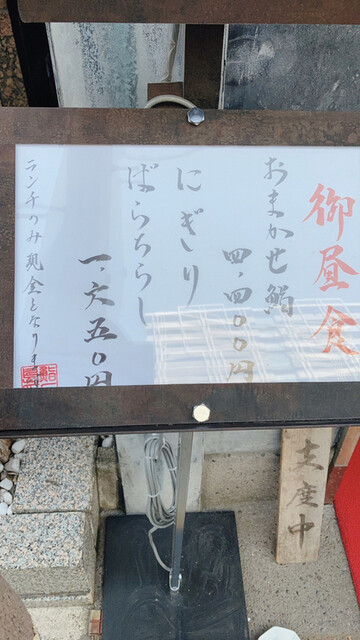 御昼食
おまかせ鮨
四、四〇〇円
にぎり
ばらちらし
一、六五〇円
ランチのみ現金となります
支度中